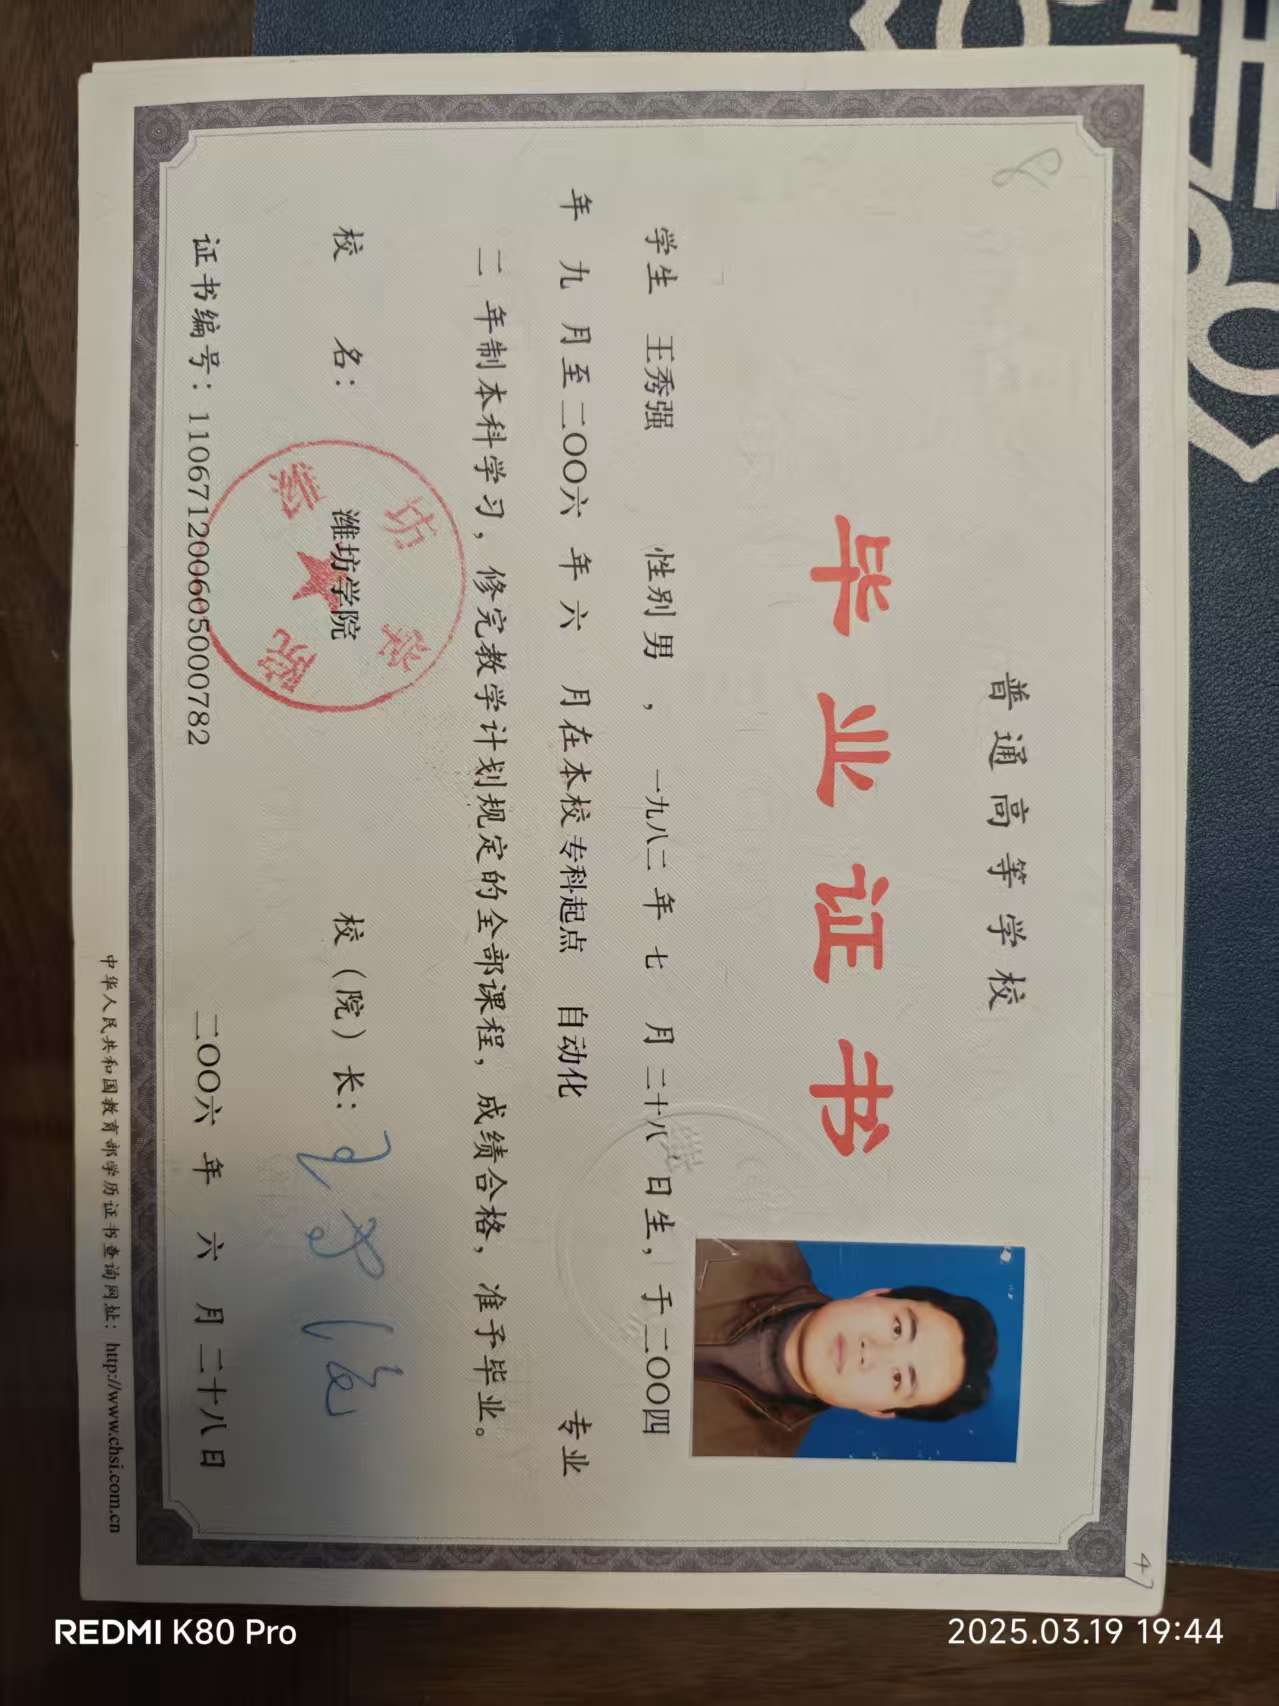 普通高等学校
毕业证书
学生 王秀强 性别 男 ， 一九八二 年 七 月 二十八 日生，于 二〇〇四
年 九 月至 二〇〇六 年 六 月在本校 专科起点 自动化 专业
二 年制本科学习，修完教学计划规定的全部课程，成绩合格，准予毕业。
校 名： 潍坊学院
校（院）长：
证书编号：110671200605000782
二〇〇六 年 六 月 二十八 日
中华人民共和国教育部学历证书查询网址：http://www.chsi.com.cn
8
47
REDMI K80 Pro
2025.03.19 19:44